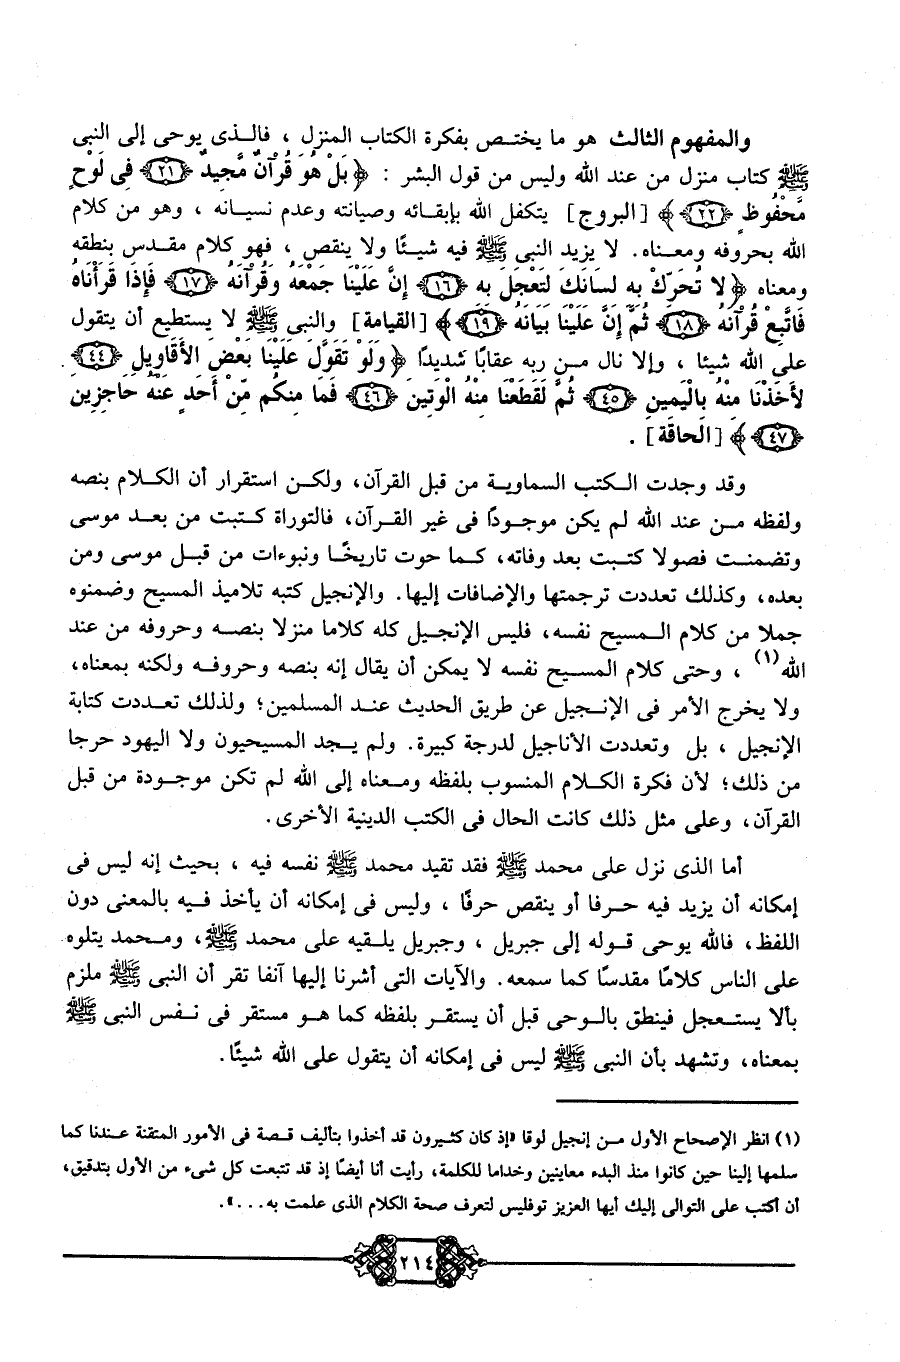 والمفهوم الثالث هو ما يختص بفكرة الكتاب المنزل ، فالذى يوحى إلى النبى
ﷺ كتاب منزل من عند الله وليس من قول البشر : ﴿ بَلْ هُوَ قُرْآنٌ مَّجِيدٌ ﴿٢١﴾ فِى لَوْحٍ
مَّحْفُوظٍ ﴿٢٢﴾ ﴾ [البروج] يتكفل الله بإبقائه وصيانته وعدم نسيانه ، وهو من كلام
الله بحروفه ومعناه. لا يزيد النبى ﷺ فيه شيئًا ولا ينقص ، فهو كلام مقدس بنطقه
ومعناه ﴿ لا تُحَرِّكْ بِهِ لِسَانَكَ لِتَعْجَلَ بِهِ ﴿١٦﴾ إِنَّ عَلَيْنَا جَمْعَهُ وَقُرْآنَهُ ﴿١٧﴾ فَإِذَا قَرَأْنَاهُ
فَاتَّبِعْ قُرْآنَهُ ﴿١٨﴾ ثُمَّ إِنَّ عَلَيْنَا بَيَانَهُ ﴿١٩﴾ ﴾ [القيامة] والنبى ﷺ لا يستطيع أن يتقول
على الله شيئا ، وإلا نال من ربه عقابًا شديدًا ﴿ وَلَوْ تَقَوَّلَ عَلَيْنَا بَعْضَ الأَقَاوِيلِ ﴿٤٤﴾
لأَخَذْنَا مِنْهُ بِالْيَمِينِ ﴿٤٥﴾ ثُمَّ لَقَطَعْنَا مِنْهُ الْوَتِينَ ﴿٤٦﴾ فَمَا مِنكُم مِّنْ أَحَدٍ عَنْهُ حَاجِزِينَ
﴿٤٧﴾ ﴾ [الحاقة] .
وقد وجدت الكتب السماوية من قبل القرآن، ولكن استقرار أن الكلام بنصه
ولفظه من عند الله لم يكن موجودًا فى غير القرآن، فالتوراة كتبت من بعد موسى
وتضمنت فصولا كتبت بعد وفاته، كما حوت تاريخًا ونبوءات من قبل موسى ومن
بعده، وكذلك تعددت ترجمتها والإضافات إليها. والإنجيل كتبه تلاميذ المسيح وضمنوه
جملا من كلام المسيح نفسه، فليس الإنجيل كله كلاما منزلا بنصه وحروفه من عند
الله(١) ، وحتى كلام المسيح نفسه لا يمكن أن يقال إنه بنصه وحروفه ولكنه بمعناه،
ولا يخرج الأمر فى الإنجيل عن طريق الحديث عند المسلمين؛ ولذلك تعددت كتابة
الإنجيل ، بل وتعددت الأناجيل لدرجة كبيرة. ولم يجد المسيحيون ولا اليهود حرجا
من ذلك؛ لأن فكرة الكلام المنسوب بلفظه ومعناه إلى الله لم تكن موجودة من قبل
القرآن، وعلى مثل ذلك كانت الحال فى الكتب الدينية الأخرى.
أما الذى نزل على محمد ﷺ فقد تقيد محمد ﷺ نفسه فيه ، بحيث إنه ليس فى
إمكانه أن يزيد فيه حرفا أو ينقص حرفًا ، وليس فى إمكانه أن يأخذ فيه بالمعنى دون
اللفظ، فالله يوحى قوله إلى جبريل ، وجبريل يلقيه على محمد ﷺ، ومحمد يتلوه
على الناس كلامًا مقدسًا كما سمعه. والآيات التى أشرنا إليها آنفا تقر أن النبى ﷺ ملزم
بألا يستعجل فينطق بالوحى قبل أن يستقر بلفظه كما هو مستقر فى نفس النبى ﷺ
بمعناه، وتشهد بأن النبى ﷺ ليس فى إمكانه أن يتقول على الله شيئًا.
(١) انظر الإصحاح الأول من إنجيل لوقا «إذ كان كثيرون قد أخذوا بتأليف قصة فى الأمور المتقنة عندنا كما
سلمها إلينا حين كانوا منذ البدء معاينين وخداما للكلمة، رأيت أنا أيضًا إذ قد تتبعت كل شىء من الأول بتدقيق،
أن أكتب على التوالى إليك أيها العزيز توفليس لتعرف صحة الكلام الذى علمت به...».
٢١٤